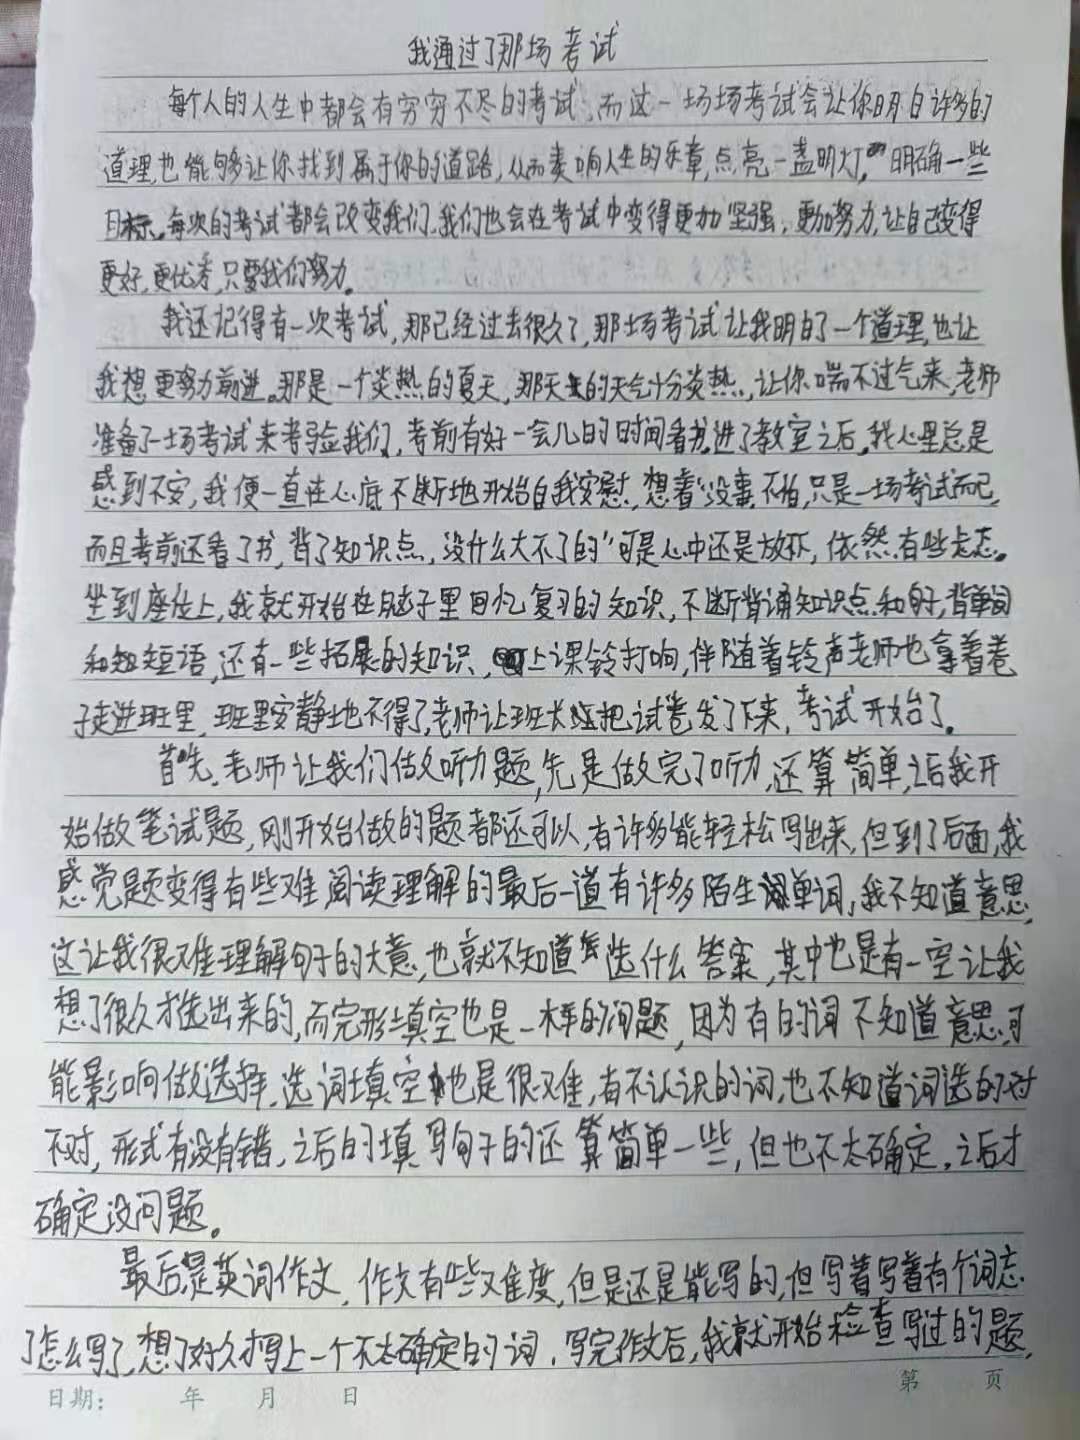 我通过了那场考试
每个人的人生中都会有穷穷不尽的考试,而这一场场考试会让你明白许多的
道理,也能够让你找到属于你的道路,从而奏响人生的乐章,点亮一盏明灯,明确一些
目标。每次的考试都会改变我们,我们也会在考试中变得更加坚强,更加努力,让自己变得
更好,更优秀,只要我们努力。
我还记得有一次考试,那已经过去很久了,那场考试让我明白了一个道理,也让
我想更努力前进。那是一个炎热的夏天,那天的天气十分炎热,让你喘不过气来,老师
准备了一场考试来考验我们,考前有好一会儿的时间看书,进了教室之后,我心里总是
感到不安,我便一直在心底不断地开始自我安慰,想着“没事,不怕,只是一场考试而已,
而且考前还看了书,背了知识点,没什么大不了的”可是心中还是放不下,依然有些忐忑。
坐到座位上,我就开始在脑子里回忆复习的知识,不断背诵知识点和句子,背单词
和短语,还有一些拓展的知识,上课铃打响,伴随着铃声老师也拿着卷
子走进班里,班里安静地不得了,老师让班长把试卷发了下来,考试开始了。
首先,老师让我们做听力题,先是做完了听力,还算简单,之后我开
始做笔试题,刚开始做的题都还可以,有许多能轻松写出来,但到了后面,我
感觉题变得有些难,阅读理解的最后一道有许多陌生单词,我不知道意思,
这让我很难理解句子的大意,也就不知道怎选什么答案,其中也是有一空让我
想了很久才选出来的,而完形填空也是一样的问题,因为有的词不知道意思,可
能影响做选择,选词填空也是很难,有不认识的词,也不知道词选的对
不对,形式有没有错,之后的填写句子的还算简单一些,但也不太确定,之后才
确定没问题。
最后是英词作文,作文有些难度,但是还是能写的,但写着写着有个词忘
了怎么写了,想了好久才写上一个不太确定的词,写完作文后,我就开始检查写过的题,
日期: 年 月 日 第 页